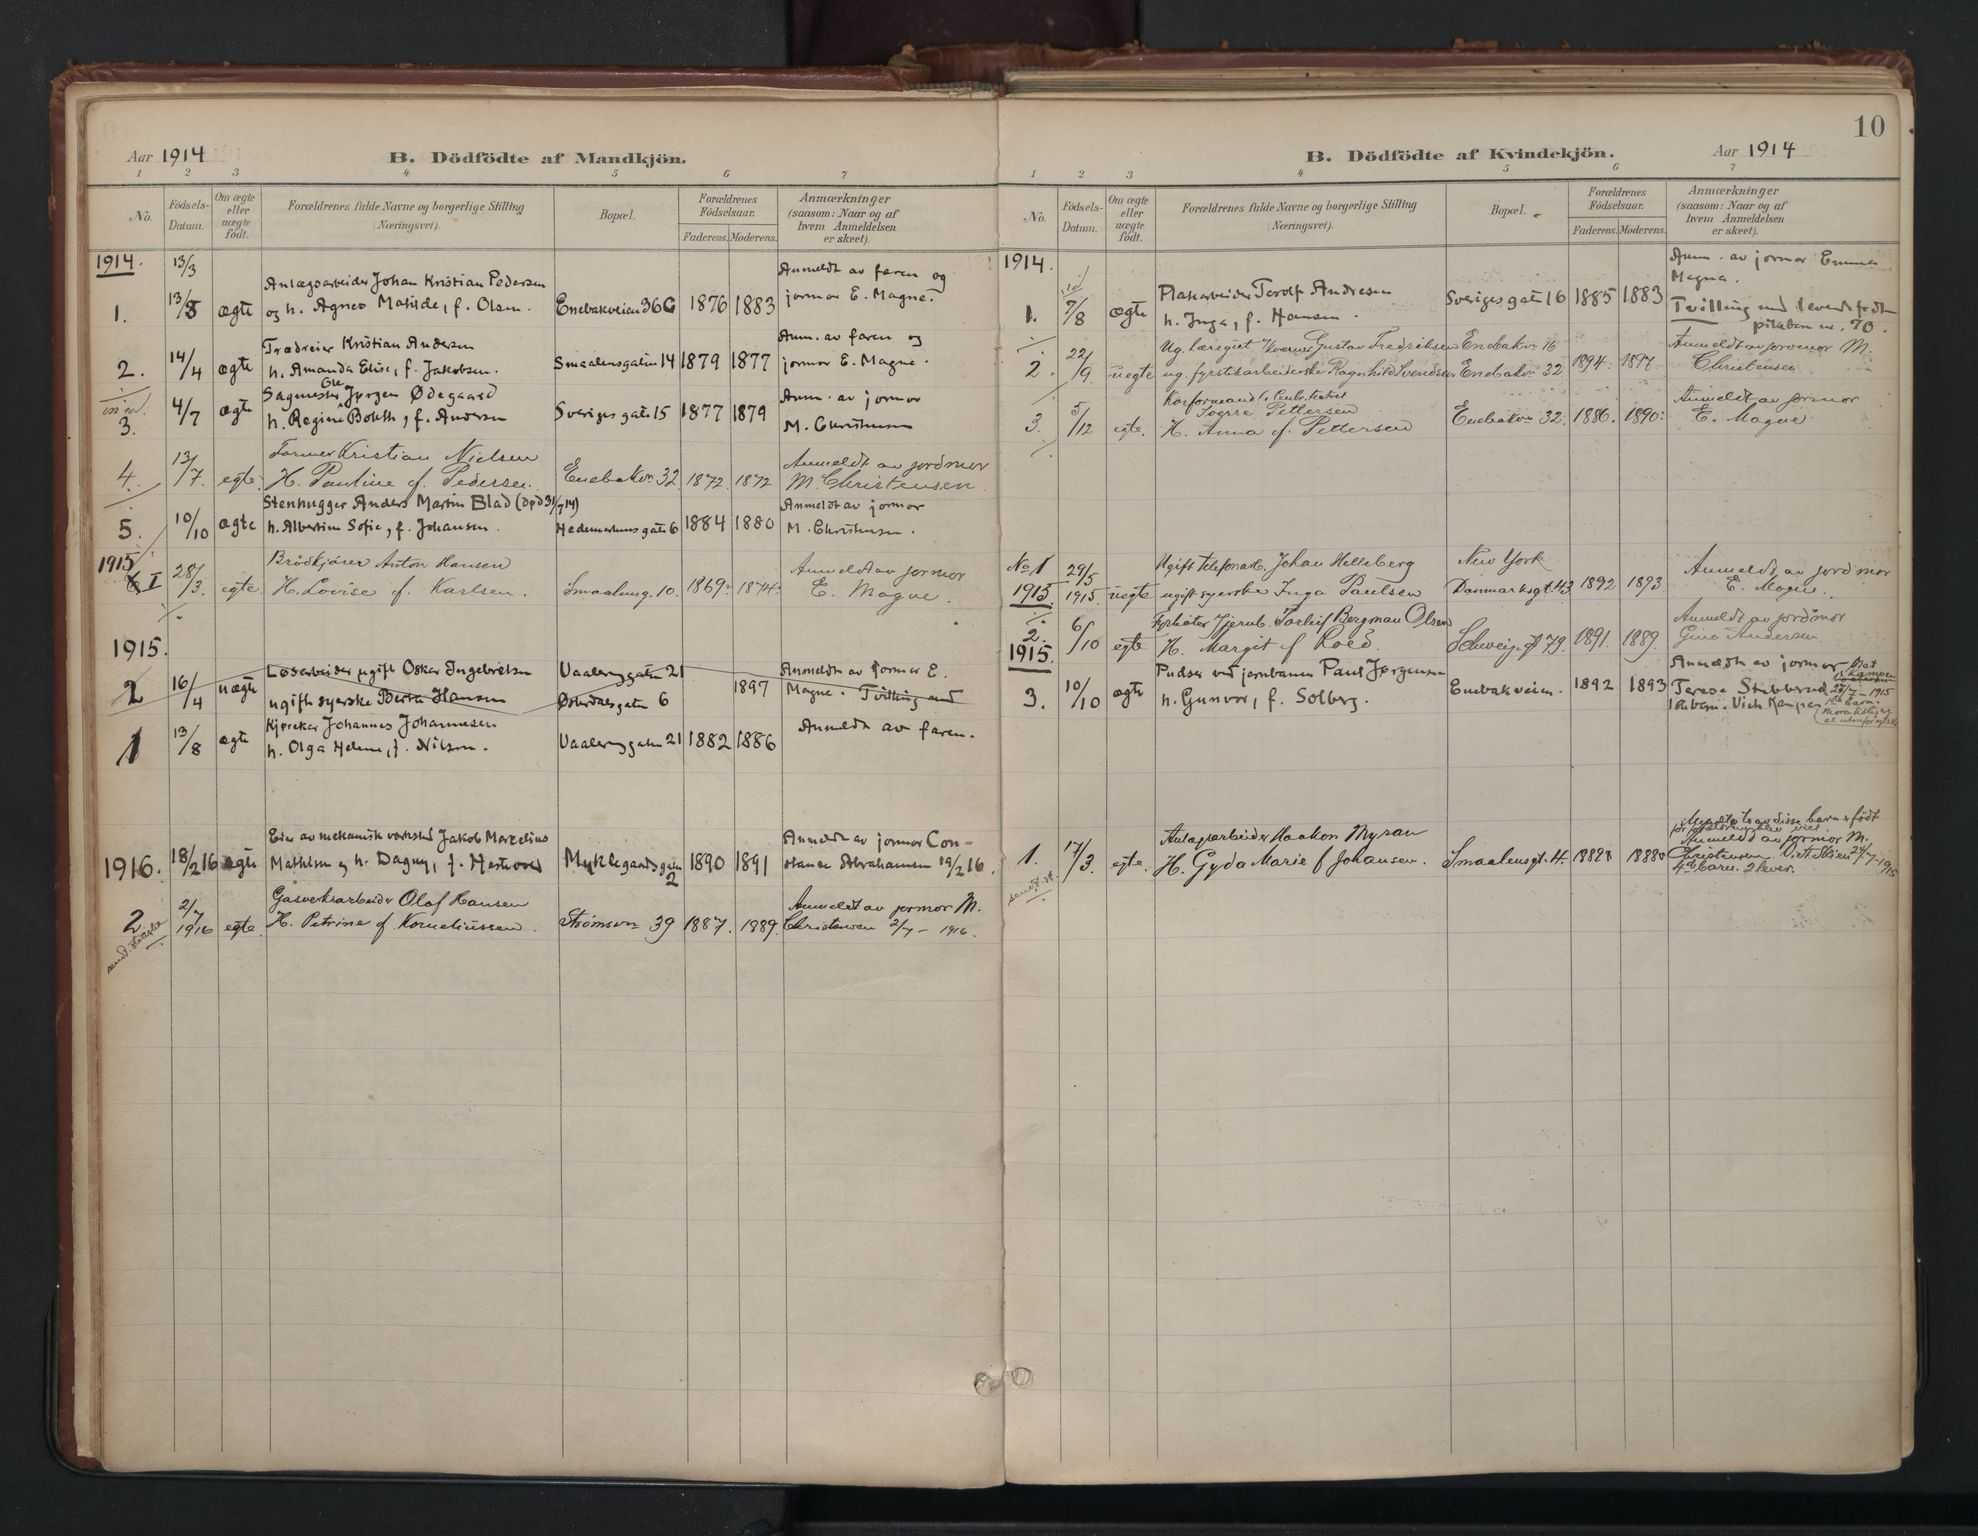 Aar 1914
B. Dödfödte af Mandkjön.
1 2 3 4 5 6 7
No. Födsels-Datum. Om ægte eller uægte födt. Forældrenes fulde Navne og borgerlige Stilling (Næringsvei). Bopæl. Forældrenes Födselsaar. Faderens. Moderens. Anmærkninger (saasom: Naar og af hvem Anmeldelsen er skeet).
1914. 13/3
Anlægsarbeider Johan Kristian Pedersen Anmeldt av faren og
1. 13/3 ægte og h. Agnes Matilde, f. Olsen. Enebakveien 36 C 1876 1883 jormor E. Magne.
Kristian Andersen Anm. av faren og
2. 14/4 ægte h. Amanda Elise, f. Jakobsen. Smaalensgaten 14 1879 1877 jormor E. Magne.
Sagmester Jørgen Ødegaard Anm. av jormor
3. 4/7 ægte h. Regine Bolette, f. Andersen Sverigesgate 15 1877 1879 M. Christensen
Former Kristian Nielsen Anmeldt av jordmor
4. 13/7. egte. H. Pauline f. Pedersen. Enebakvn 32 1872. 1872 M. Christensen.
Stenhugger Anders Martin Blad (død 31/7 14) Anmeldt av jormor
5. 10/10 ægte h. Albertine Sofie, f. Johansen. Hedemarkensgate 6 1884 1880 M. Christensen.
1915 Brødkjører Anton Hansen Anmeldt av jormor
I 28/3. egte. H. Lovise f. Karlsen. Smaalensg. 10. 1869. 1874. E. Magne.
1915.
Løsarbeider ugift Oskar Ingebretsen Vaalerenggaten 21 Anmeldt av jormor E.
2 16/4 uægte ugift syerske Berta Hansen Østerdalsgaten 6 1897 Magne. Tvilling med
Kjører Johannes Johannesen Anmeldt av faren.
1 13/8 ægte h. Olga Helene, f. Nilsen. Vaalerenggaten 21 1882 1886
Eier av mekanisk verksted Jakob Marcelius Anmeldt av jormor Con-
1916. 18/2 16 ægte Mathisen og h. Dagny, f. Myklegaardsgaten 2 1890 1891 stance Abrahamsen 19/2 16.
Gasverksarbeider Olaf Hansen Anmeldt av jormor M.
2. 2/7 1916 egte. H. Petrine f. Korneliussen. Strømsvn 39 1887. 1889. Christensen 2/7 - 1916.
10
B. Dödfödte af Kvindekjön.
Aar 1914
1 2 3 4 5 6 7
No. Födsels-Datum. Om ægte eller uægte födt. Forældrenes fulde Navne og borgerlige Stilling (Næringsvei). Bopæl. Forældrenes Födselsaar. Faderens. Moderens. Anmærkninger (saasom: Naar og af hvem Anmeldelsen er skeet).
1914. Anm. av jormor Emma
Magna.
Andresen
1. 7/8 ægte h. Inga, f. Hansen. Sverigesgate 16 1885 1883 Tvilling med levendefødt
pikebarn nr. 70.
Gustav Fredriksen Enebakvn 16 Anmeldt av jormor M.
2. 22/9 uegte ug. fyrstikarbeiderske Ragnhild Svendsen Enebakvn 32 1894. 1897. Christensen
Sverre Pettersen Anmeldt av jormor
3. 5/12 egte. H. Anna f. Pettersen Enebakvn 32. 1886. 1890. E. Magne
No 1 29/5 Ugift Johan Helleberg New York Anmeldt av jordmor
1915. 1915. uegte ugift syerske Inga Paulsen Danmarksgt. 43 1892 1893 E. Magne.
2. Bergman Olsen Anmeldt av jordmor
1915 6/10 egte H. Margit f. Roed. Schweigaardsgt 79. 1891. 1889. Gina Andersen.
Pudser ved jernbanen Paul Jørgensen Anmeldt av jormor
3. 10/10 ægte h. Gunvor, f. Solberg. Enebakveien. 1892 1893 Terese Stubberud
1ste barn. Viet Kampen 1915
Anlægsarbeider Haakon Myran Anmeldt av jormor M.
1. 17/3. egte. H. Gyda Marie f. Johansen. Smaalensgt. 4. 1888 1888 Christensen. Viet Skien 24/7-1915
4de barn. 2 lever.